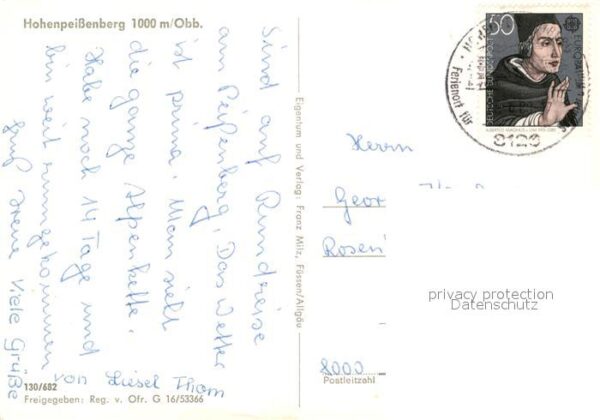 Hohenpeißenberg 1000 m/Obb.
Sind auf Rundreise
am Peißenberg. Das Wetter
ist prima. Man sieht
die ganze Alpenkette.
Habe noch 14 Tage und
bin weit rumgekommen
Gruß Irene Viele Grüße
von Liesel Thom
130/682
Freigegeben: Reg. v. Ofr. G 16/53366
Eigentum und Verlag: Franz Milz, Füssen/Allgäu
50
EUROPA
DEUTSCHE BUNDESPOST
ALBERTUS MAGNUS
Ferienort für
8126
Herrn
Geor
Rosen
8000
Postleitzahl
privacy protection
Datenschutz